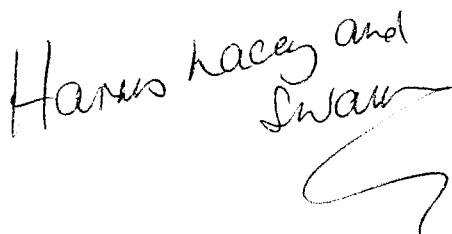 Harris Lacey and
Swain